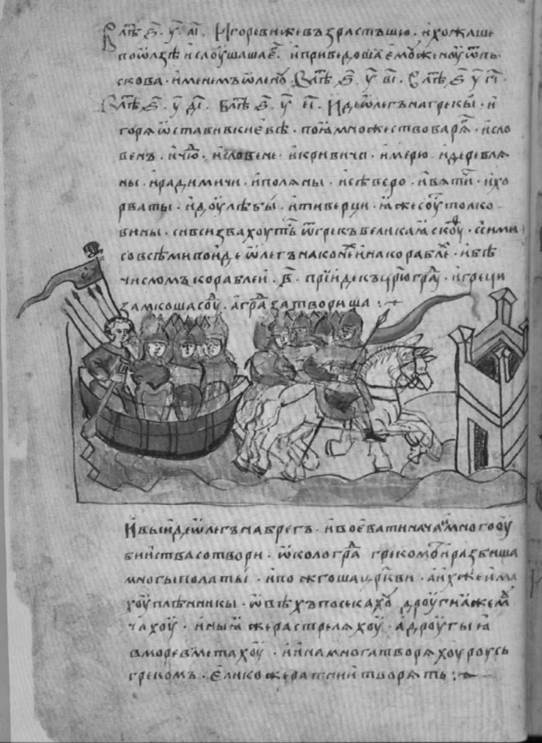 В лѣт҃ ҂ѕ҃ у҃ аі҃ · Игореви же възрастъшю · и хожаше
по ѡлзѣ и слоушаша е҃г · и приведоша емоу женоу ѿ пь
скова · именемъ ѡленоу В лѣт҃ ҂ѕ҃ у҃ ві҃ · В лѣт҃ ҂ѕ҃ у҃ гі҃ ·
В лѣт҃ ҂ѕ҃ у҃ ді҃ · В лѣт҃ ҂ѕ҃ у҃ еі҃ · Иде ѡлегъ на грекы · и
горѧ ѡстави в киевѣ · поѧ множество варѧ҃г · и сло
венъ · и чю҃д · и словене · и кривичи · и мерю · и деревлѧ
ны · и радимичи · и полѧны · и сѣверо · и вѧтичи · и хо
рваты · и доулѣбы · и тиверци · ꙗже соуⷮ толко
вины · си вси звахоуⷮ ѿ грекъ великаꙗ скоуⷴ · с сими
со всѣми поиде ѡлегъ на конеⷯ и на кораблеⷯ · и бѣ
числомъ кораблеи · ҂в҃ · прїиде к црю҃граⷣ · и греци
замкоша соуⷣ · а граⷣ затвориша :
И выиде ѡлегъ на брегъ · и воевати нача и много оу
бииства сотвори · ѡколо граⷣ грекомъ и разбиша
многы полаты · и пожгоша церкви · а иⷯже има
хоу плѣнникы · ѡвѣхъ посѣкахоу дроугиꙗ же моу
чахоу · иныꙗ же растрелѧхоу · а дроугыꙗ
в море вметахоу · и ина многа творѧхоу роусь
грекомъ · елико же ратнии творѧть :